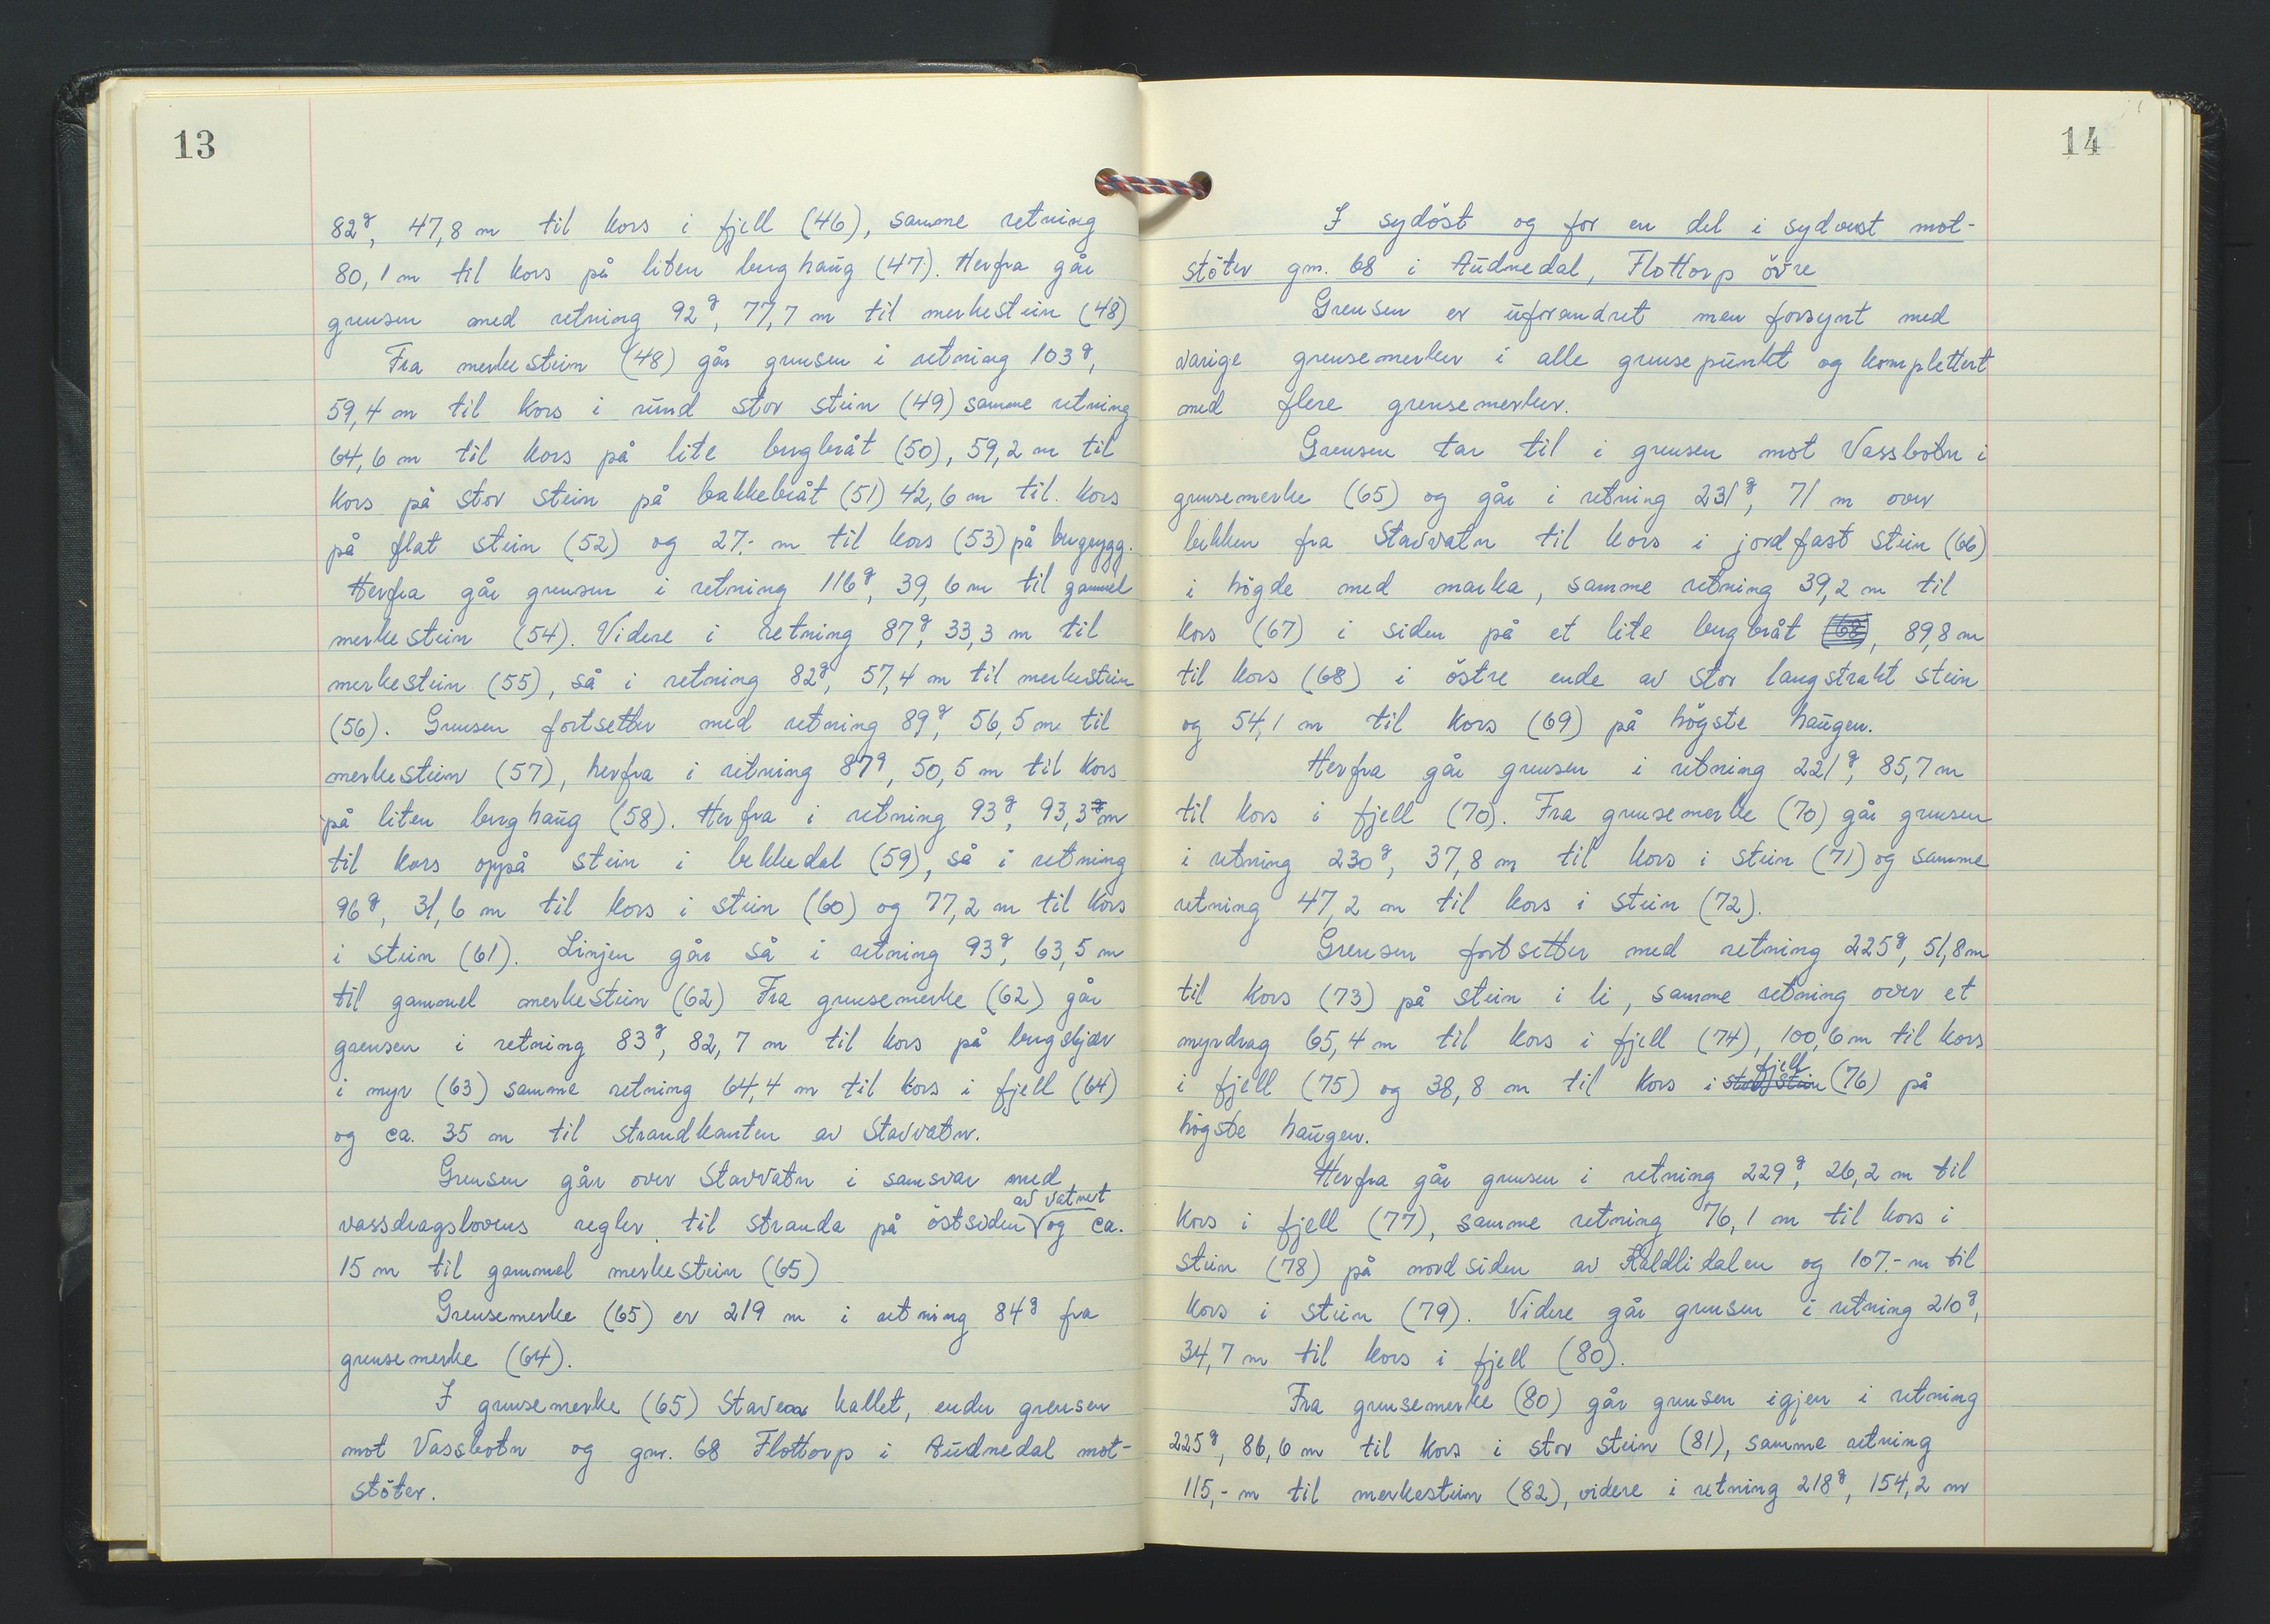 13
82g, 47,8 m til kors i fjell (46), samme retning
80,1 m til kors på liten berghaug (47). Herfra går
grensen med retning 92g, 77,7 m til merkestein (48)
Fra merkestein (48) går grensen i retning 103g,
59,4 m til kors i rund stor stein (49) samme retning
64,6 m til kors på lite bergbråt (50), 59,2 m til
kors på stor stein på bakkebråt (51) 42,6 m til kors
på flat stein (52) og 27,- m til kors (53) på bergrygg.
Herfra går grensen i retning 116g, 39,6 m til gammel
merkestein (54). Videre i retning 87g, 33,3 m til
merkestein (55), så i retning 82g, 57,4 m til merkestein
(56). Grensen fortsetter med retning 89g, 56,5 m til
merkestein (57), herfra i retning 87g, 50,5 m til kors
på liten berghaug (58). Herfra i retning 93g, 93,3 m
til kors oppå stein i bekkedal (59), så i retning
96g, 31,6 m til kors i stein (60) og 77,2 m til kors
i stein (61). Linjen går så i retning 93g, 63,5 m
til gammel merkestein (62) Fra grensemerke (62) går
grensen i retning 83g, 82,7 m til kors på bergskjær
i myr (63) samme retning 64,4 m til kors i fjell (64)
og ca. 35 m til strandkanten av Stavvatn.
Grensen går over Stavvatn i samsvar med
vassdragslovens regler til stranda på östsiden av vatnet og ca.
15 m til gammel merkestein (65)
Grensemerke (65) er 219 m i retning 84g fra
grensemerke (64).
I grensemerke (65) kallet, ender grensen
mot Vassbotn og gnr. 68 Flottorp i Audnedal mot-
stöter.
14
I sydöst og for en del i sydvest mot-
stöter gnr. 68 i Audnedal, Flottorp övre
Grensen er uforandret men forsynt med
varige grensemerker i alle grensepunkt og komplettert
med flere grensemerker.
Grensen tar til i grensen mot Vassbotn i
grensemerke (65) og går i retning 231g, 71 m over
bekken fra Stavvatn til kors i jordfast stein (66)
i högde med marka, samme retning 39,2 m til
kors (67) i siden på et lite bergbråt (68), 89,8 m
til kors (68) i östre ende av stor langstrakt stein
og 54,1 m til kors (69) på högste haugen.
Herfra går grensen i retning 221g, 85,7 m
til kors i fjell (70). Fra grensemerke (70) går grensen
i retning 230g, 37,8 m til kors i stein (71) og samme
retning 47,2 m til kors i stein (72).
Grensen fortsetter med retning 225g, 51,8 m
til kors (73) på stein i li, samme retning over et
myrdrag 65,4 m til kors i fjell (74), 100,6 m til kors
i fjell (75) og 38,8 m til kors i stor stein fjell (76) på
högste haugen.
Herfra går grensen i retning 229g, 26,2 m til
kors i fjell (77), samme retning 76,1 m til kors i
stein (78) på nordsiden av Kaldlidalen og 107,- m til
kors i stein (79). Videre går grensen i retning 210g,
34,7 m til kors i fjell (80).
Fra grensemerke (80) går grensen igjen i retning
225g, 86,6 m til kors i stor stein (81), samme retning
115,- m til merkestein (82), videre i retning 218g, 154,2 m